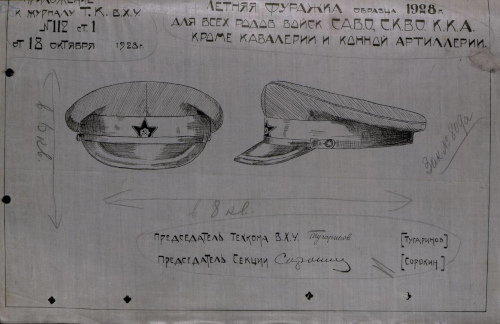 Приложение
к журналу Т.К. В.Х.У.
№ 112 ст. 1
от 18 октября 1928 г.
Летняя фуражка образца 1928 г.
для всех родов войск САВО, СКВО, К.К.А.
кроме кавалерии и конной артиллерии.
в 8 кв.
Председатель Техкома В.Х.У. Тугаринов [Тугаринов]
Председатель Секции Сорокин [Сорокин]